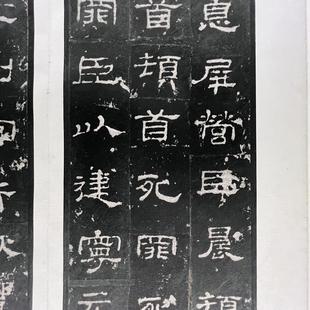 息屏營臣晨頓
首頓首死罪死
罪臣以建寧元